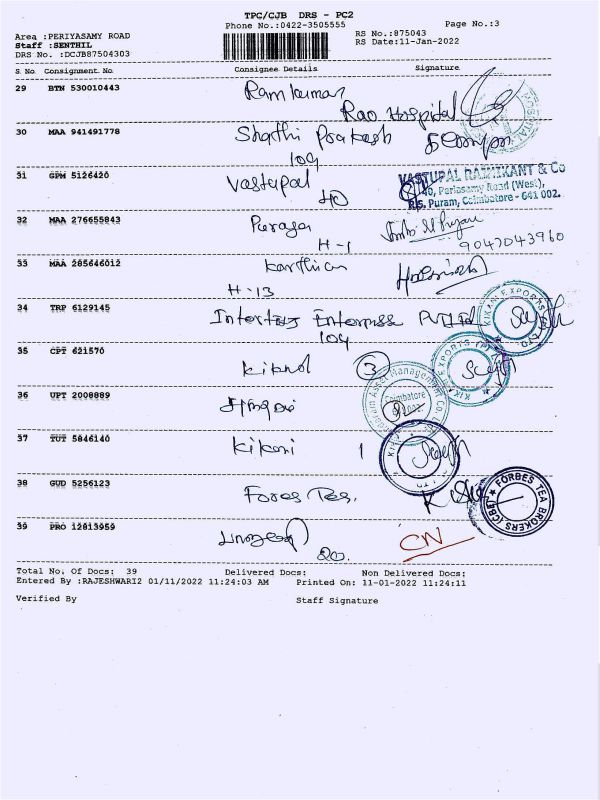 TPC/CJB DRS - PC2
Phone No.:0422-3505555
Page No.:3
Area :PERIYASAMY ROAD
RS No.:875043
Staff :SENTHIL
RS Date:11-Jan-2022
DRS No. :DCJB87504303
S No Consignment No Consignee Details Signature
29 BTN 530010443 Ramkumar
Rao Hospital
HOSPITAL
30 MAA 941491778 Shathi Prakash
104
31 GPM 5126420 Vastupal
40
VASTUPAL RASHIKANT & Co
40, Periasamy Road (West),
R.S. Puram, Coimbatore - 641 002.
32 MAA 276655843
H-1
9047043960
33 MAA 285646012 Karthian
H-13
34 TRP 6129145 Pvt Ltd
104
KIKANI EXPORTS (P) LTD
35 CPT 621570 3
KIKANI EXPORTS (P)
36 UPT 2008889
Asset Management Co.
Coimbatore
37 TUT 5846140 Kikani 1
38 GUD 5256123 Fores Tea.
FORBES TEA BROKERS (CBE)
39 PRO 12813959
CN
Total No. Of Docs: 39 Delivered Docs: Non Delivered Docs:
Entered By :RAJESHWARI2 01/11/2022 11:24:03 AM Printed On: 11-01-2022 11:24:11
Verified By Staff Signature